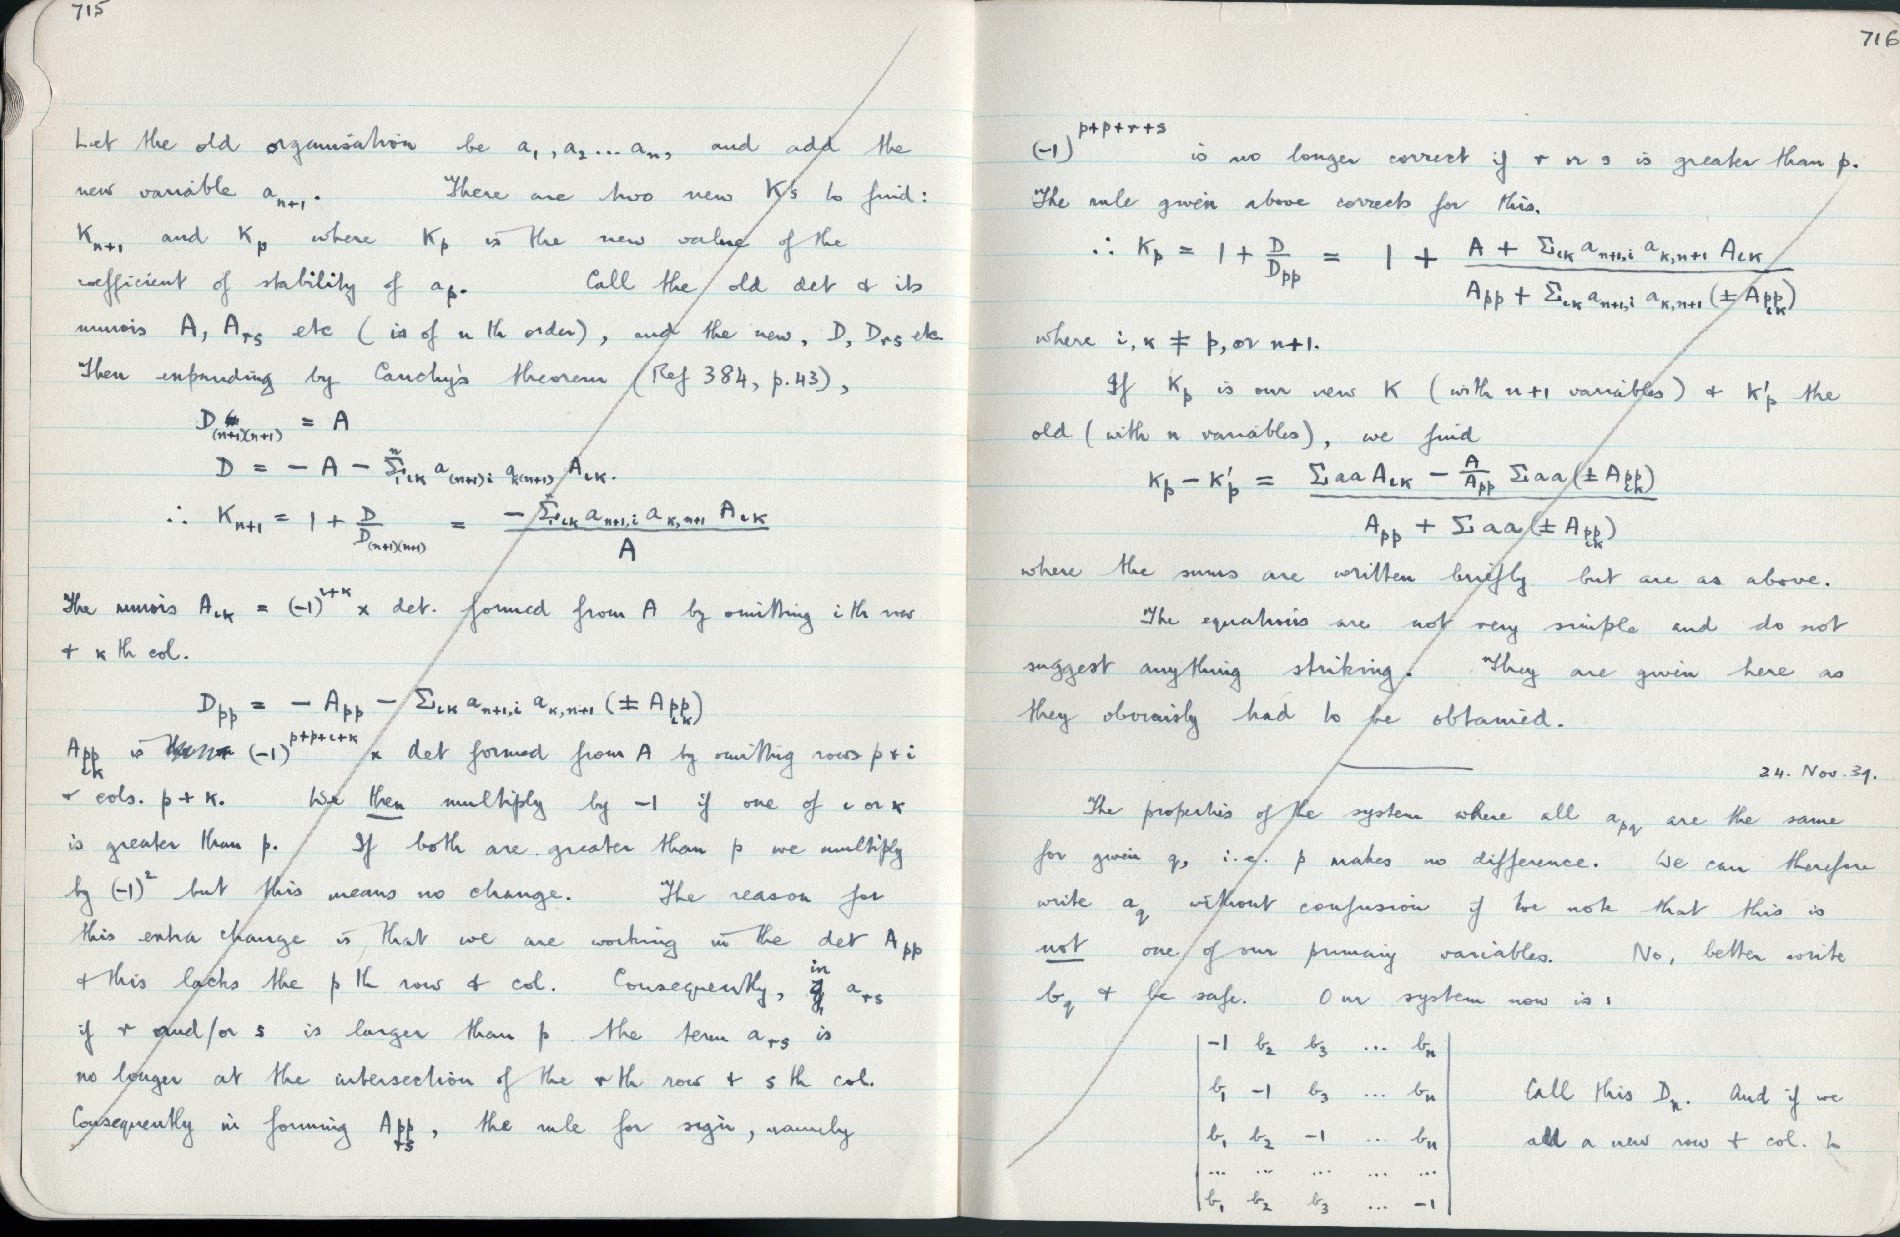 715
Let the old organisation be a₁, a₂ ... aₙ, and add the
new variable aₙ₊₁. There are two new K's to find:
Kₙ₊₁ and Kₚ where Kₚ is the new value of the
coefficient of stability of aₚ. Call the old det & its
minors A, Aᵣₛ etc ( is of n th order), and the new, D, Dᵣₛ etc
Then expanding by Cauchy's theorem (Ref 384, p.43),
D₍ₙ₊₁₎₍ₙ₊₁₎ = A
D = − A − Σ₁ⁿ_{ik} a_{(n+1)i} a_{k(n+1)} A_{ik}.
∴ Kₙ₊₁ = 1 + D/D₍ₙ₊₁₎₍ₙ₊₁₎ = − Σ₁ⁿ_{ik} a_{n+1,i} a_{k,n+1} A_{ik} / A
The minors A_{ik} = (-1)^{i+k} × det. formed from A by omitting i th row
+ k th col.
D_{pp} = − A_{pp} − Σ_{ik} a_{n+1,i} a_{k,n+1} (± A_{pp,ik})
A_{pp,ik} is (-1)^{p+p+i+k} × det formed from A by omitting rows p + i
+ cols. p + k. We then multiply by -1 if one of i or k
is greater than p. If both are greater than p we multiply
by (-1)² but this means no change. The reason for
this extra change is that we are working in the det A_{pp}
& this lacks the p th row & col. Consequently, in aᵣₛ
if r and/or s is larger than p the term aᵣₛ is
no longer at the intersection of the r th row + s th col.
Consequently in forming A_{pp,rs}, the rule for sign, namely
716
(-1)^{p+p+r+s} is no longer correct if r or s is greater than p.
The rule given above corrects for this.
∴ Kₚ = 1 + D/D_{pp} = 1 + (A + Σ_{ik} a_{n+1,i} a_{k,n+1} A_{ik}) / (A_{pp} + Σ_{ik} a_{n+1,i} a_{k,n+1} (± A_{pp,ik}))
where i, k ≠ p, or n+1.
If Kₚ is our new K (with n+1 variables) + K'ₚ the
old (with n variables), we find
Kₚ − K'ₚ = (Σ aa A_{ik} − A/A_{pp} Σ aa (± A_{pp,ik})) / (A_{pp} + Σ aa (± A_{pp,ik}))
where the sums are written briefly but are as above.
The equations are not very simple and do not
suggest anything striking. They are given here as
they obviously had to be obtained.
24. Nov. 39.
The properties of the system where all a_{pq} are the same
for given q, i.e. p makes no difference. We can therefore
write a_q without confusion if we note that this is
not one of our primary variables. No, better write
b_q & be safe. Our system now is:
| -1 b₂ b₃ ... bₙ |
| b₁ -1 b₃ ... bₙ | Call this Dₙ. And if we
| b₁ b₂ -1 ... bₙ | add a new row + col. to
| ... ... ... ... ... |
| b₁ b₂ b₃ ... -1 |